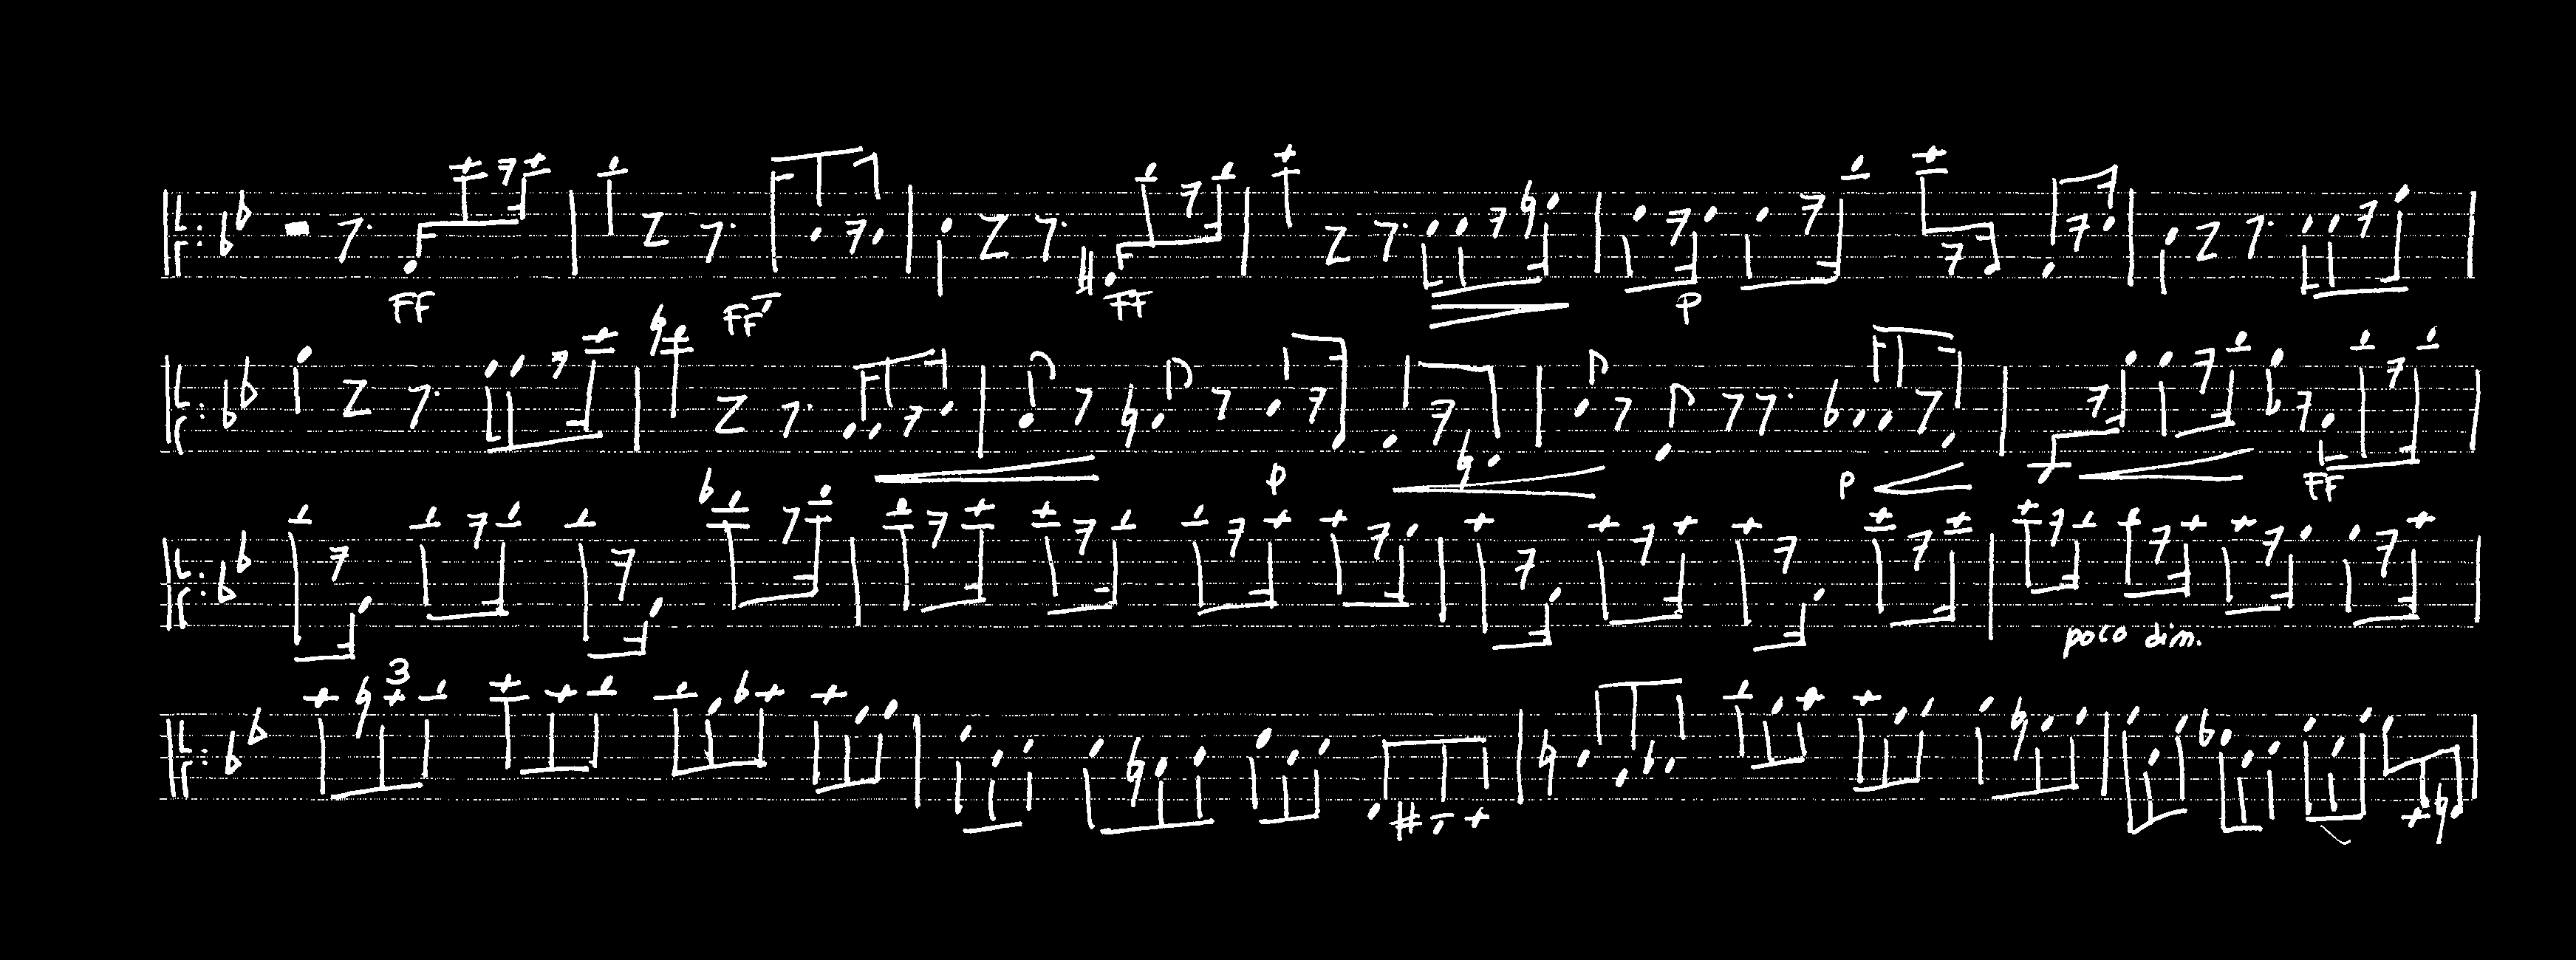 FF FF FF p
p p FF
poco dim.
3